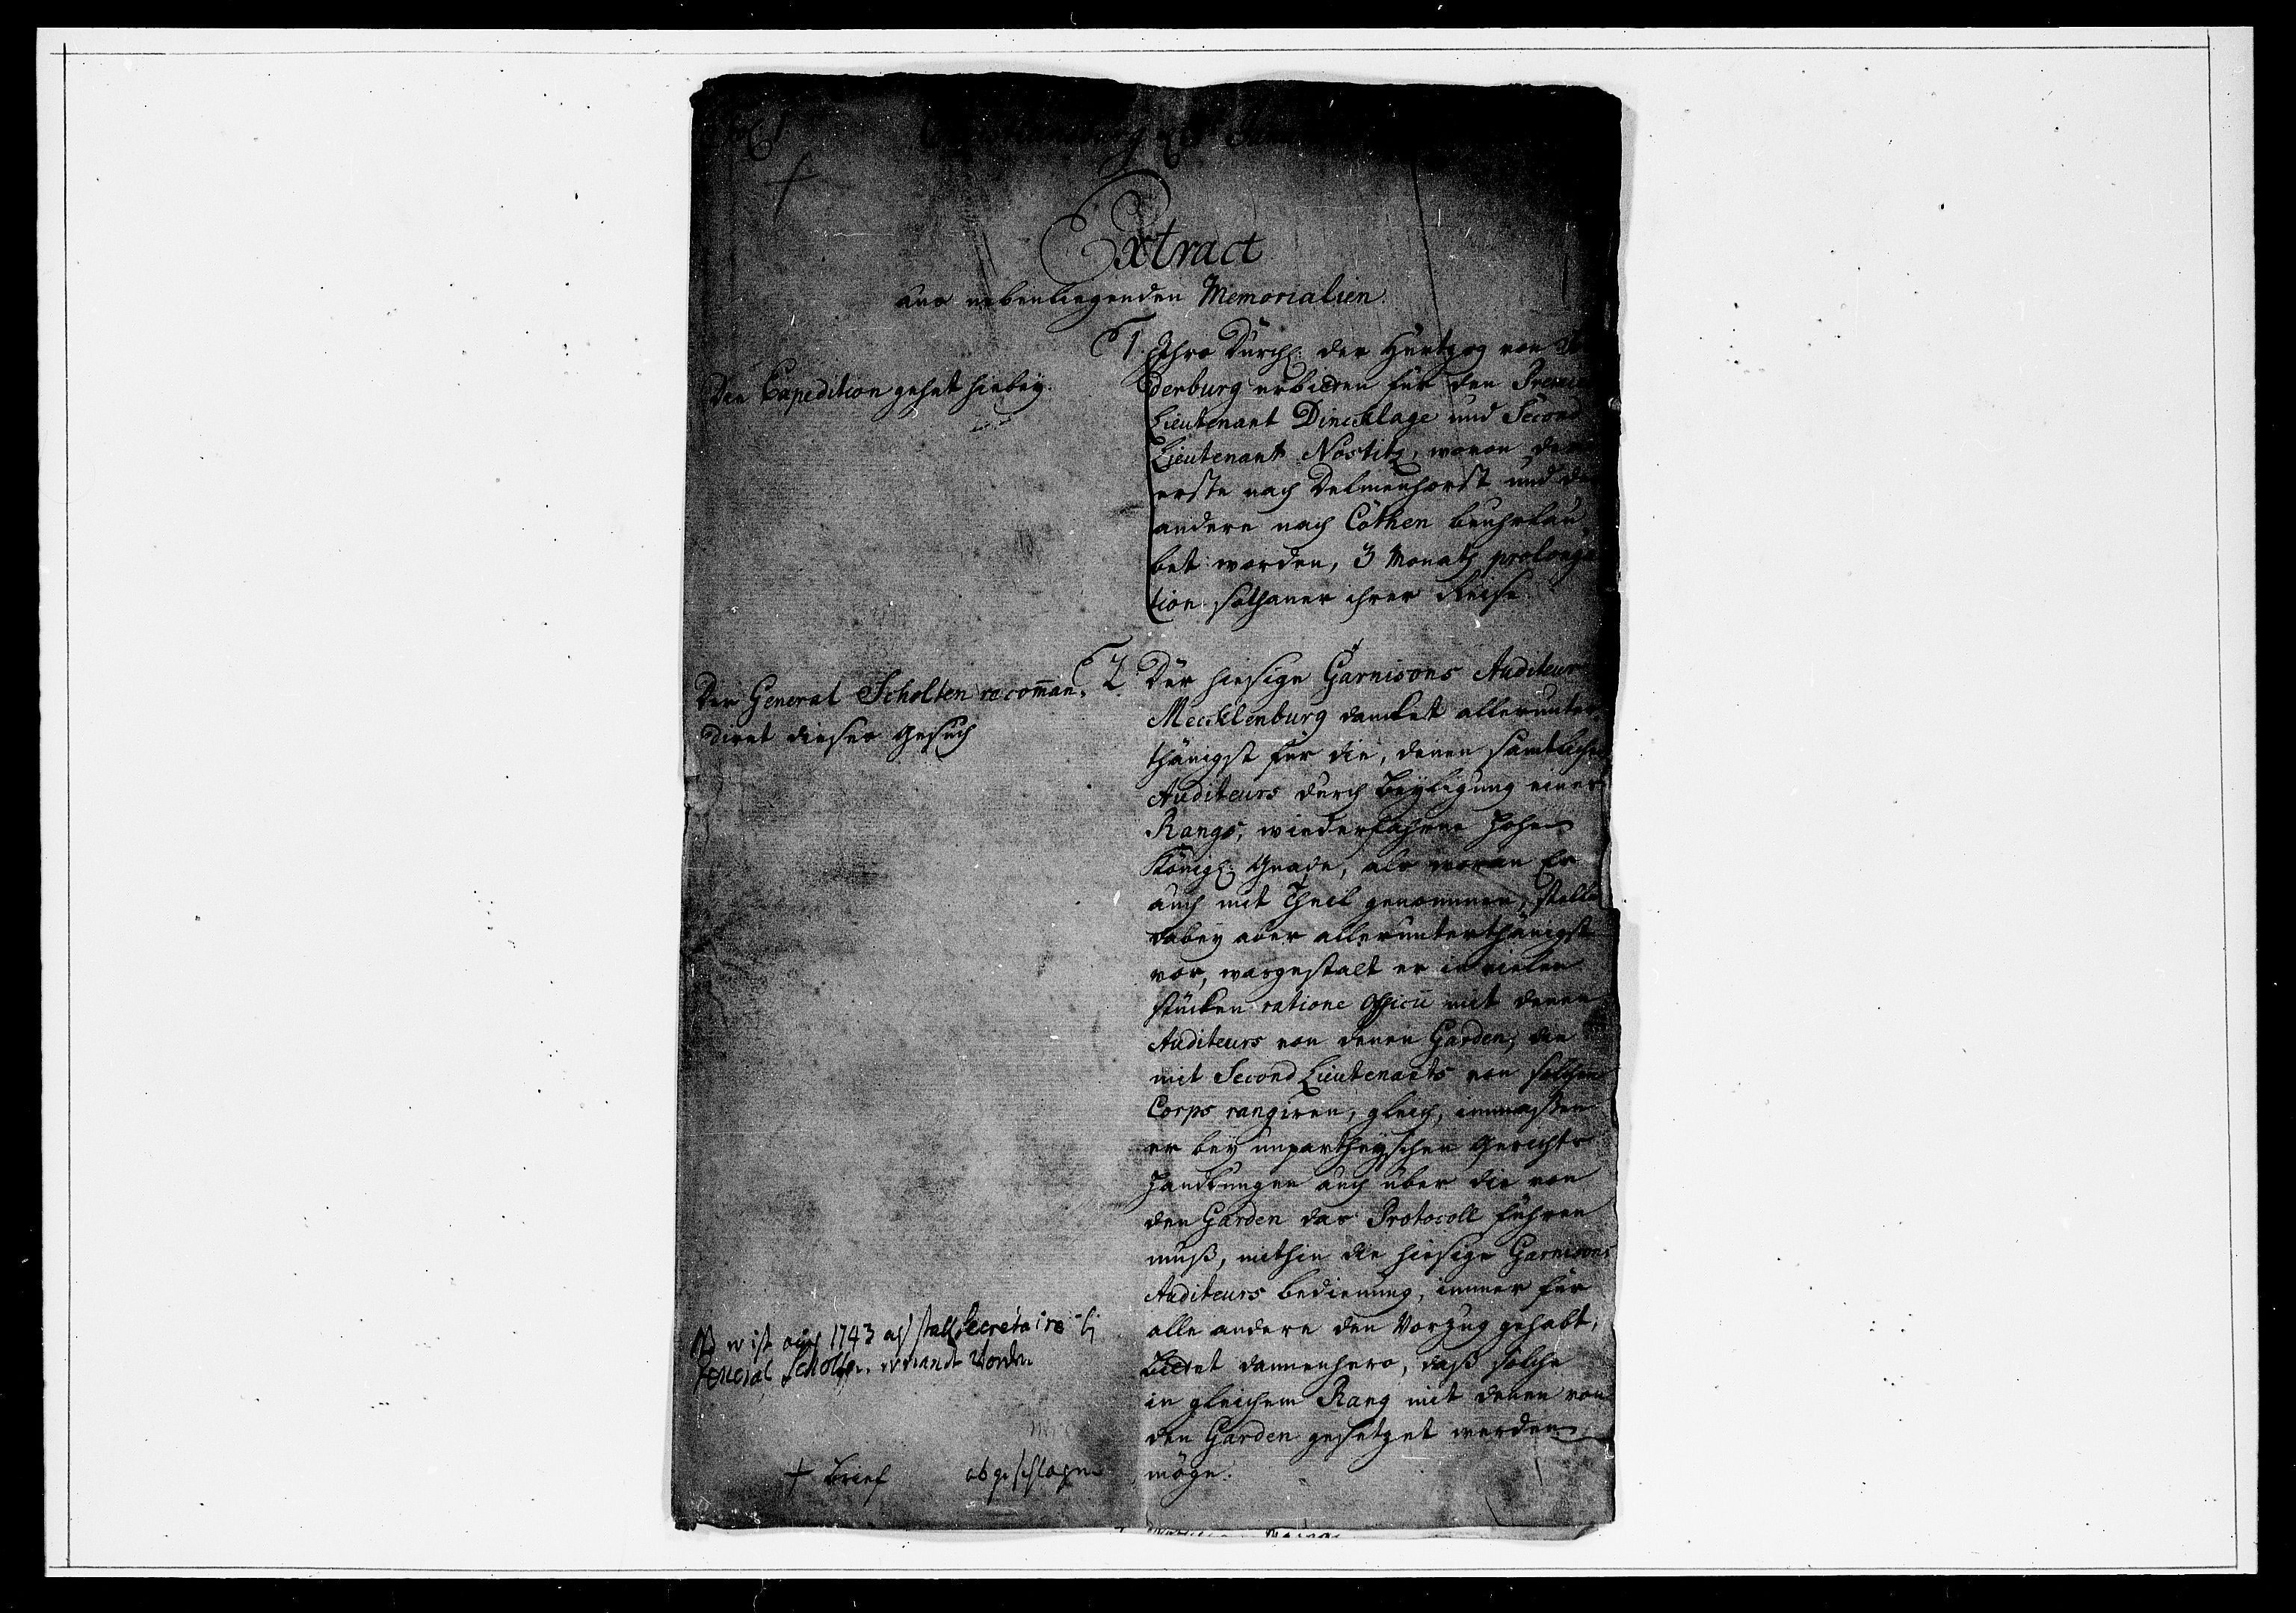 Extract
aus nebenliegenden Memorialien.
1. Ihro Dürchl: der Hertzog von
derburg erbitten für den Premier
Lieutenant Dincklage und Second
Lieutenant Nostitz, wovon der
erste nach Delmenhorst und der
andere nach Cöthen beuhrlau-
bet worden, 3 Monath prolonga
tion sothaner ihrer Reise.
Die Expedition gehet hiebey.
2. Der hiesige Garnisons Auditeur
Mecklenburg dancket allerunter-
thänigst für die, denen sämtlichen
Auditeurs durch Beylegung eines
Rangs, wiederfahrne hohe
Königl: Gnade, als woran Er
auch mit Theil genommen, stellet
dabey aber allerunterthänigst
vor, wasgestalt er in vielen
stücken ratione officii mit denen
Auditeurs von denen Garden, die
mit Second Lieutenants von solchen
Corps rangiren, gleich, immaßen
er bey unpartheyschen Gerichts
Handlungen auch über die von
den Garden das Protocoll führen
muß, mithin die hiesige Garnisons
Auditeurs bedienung, immer für
alle andere den Vorzug gehabt,
Bittet dannenhero, daß solche
in gleichem Rang mit denen von
den Garden gesetzet werden
möge.
Der General Scholten recomman-
diret dieses Gesuch
ist 1743 Secretaire
General Scholten ernandt worden
+ Brief abgeschlagen